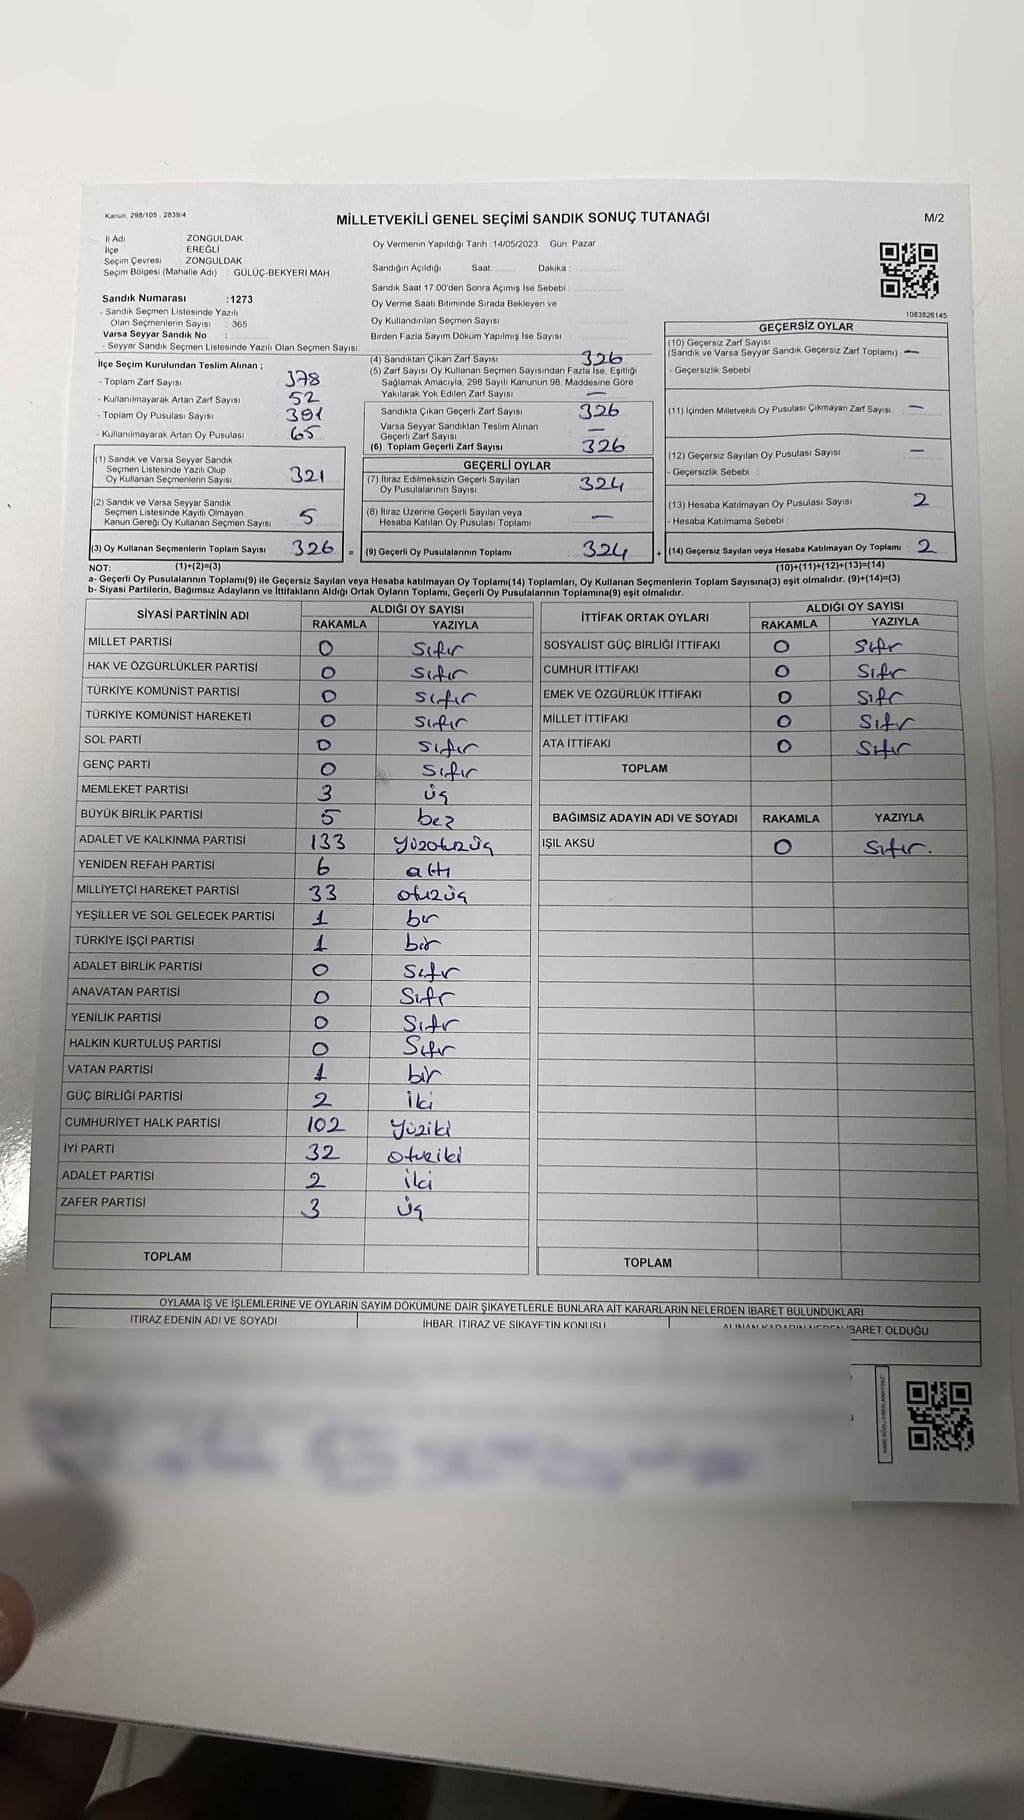 Kanun, 298/105 , 2839/4
MİLLETVEKİLİ GENEL SEÇİMİ SANDIK SONUÇ TUTANAĞI
M/2
İl Adı : ZONGULDAK
İlçe : EREĞLİ
Seçim Çevresi : ZONGULDAK
Seçim Bölgesi (Mahalle Adı) : GÜLÜÇ-BEKYERİ MAH.
Sandık Numarası :1273
- Sandık Seçmen Listesinde Yazılı
Olan Seçmenlerin Sayısı : 365
Varsa Seyyar Sandık No :
- Seyyar Sandık Seçmen Listesinde Yazılı Olan Seçmen Sayısı:
Oy Vermenin Yapıldığı Tarih :14/05/2023 Gün: Pazar
Sandığın Açıldığı Saat: Dakika :
Sandık Saat 17.00'den Sonra Açımış İse Sebebi :
Oy Verme Saati Bitiminde Sırada Bekleyen ve
Oy Kullandırılan Seçmen Sayısı :
Birden Fazla Sayım Döküm Yapılmış İse Sayısı :
1083826145
İlçe Seçim Kurulundan Teslim Alınan ;
- Toplam Zarf Sayısı 378
- Kullanılmayarak Artan Zarf Sayısı 52
- Toplam Oy Pusulası Sayısı 391
- Kullanılmayarak Artan Oy Pusulası 65
(1) Sandık ve Varsa Seyyar Sandık
Seçmen Listesinde Yazılı Olup
Oy Kullanan Seçmenlerin Sayısı 321
(2) Sandık ve Varsa Seyyar Sandık
Seçmen Listesinde Kayıtlı Olmayan
Kanun Gereği Oy Kullanan Seçmen Sayısı 5
(3) Oy Kullanan Seçmenlerin Toplam Sayısı 326 =
(4) Sandıktan Çıkan Zarf Sayısı : 326
(5) Zarf Sayısı Oy Kullanan Seçmen Sayısından Fazla İse, Eşitliği
Sağlamak Amacıyla, 298 Sayılı Kanunun 98. Maddesine Göre
Yakılarak Yok Edilen Zarf Sayısı : —
Sandıkta Çıkan Geçerli Zarf Sayısı : 326
Varsa Seyyar Sandıktan Teslim Alınan
Geçerli Zarf Sayısı : —
(6) Toplam Geçerli Zarf Sayısı : 326
GEÇERLİ OYLAR
(7) İtiraz Edilmeksizin Geçerli Sayılan
Oy Pusulalarının Sayısı : 324
(8) İtiraz Üzerine Geçerli Sayılan veya
Hesaba Katılan Oy Pusulası Toplamı : —
(9) Geçerli Oy Pusulalarının Toplamı : 324 +
GEÇERSİZ OYLAR
(10) Geçersiz Zarf Sayısı
(Sandık ve Varsa Seyyar Sandık Geçersiz Zarf Toplamı) : —
- Geçersizlik Sebebi :
(11) İçinden Milletvekili Oy Pusulası Çıkmayan Zarf Sayısı : —
(12) Geçersiz Sayılan Oy Pusulası Sayısı : —
- Geçersizlik Sebebi :
(13) Hesaba Katılmayan Oy Pusulası Sayısı : 2
- Hesaba Katılmama Sebebi :
(14) Geçersiz Sayılan veya Hesaba Katılmayan Oy Toplamı : 2
NOT: (1)+(2)=(3) (10)+(11)+(12)+(13)=(14)
a- Geçerli Oy Pusulalarının Toplamı(9) ile Geçersiz Sayılan veya Hesaba katılmayan Oy Toplamı(14) Toplamları, Oy Kullanan Seçmenlerin Toplam Sayısına(3) eşit olmalıdır. (9)+(14)=(3)
b- Siyasi Partilerin, Bağımsız Adayların ve İttifakların Aldığı Ortak Oyların Toplamı, Geçerli Oy Pusulalarının Toplamına(9) eşit olmalıdır.
SİYASİ PARTİNİN ADI ALDIĞI OY SAYISI
RAKAMLA YAZIYLA
MİLLET PARTİSİ 0 Sıfır
HAK VE ÖZGÜRLÜKLER PARTİSİ 0 Sıfır
TÜRKİYE KOMÜNİST PARTİSİ 0 sıfır
TÜRKİYE KOMÜNİST HAREKETİ 0 sıfır
SOL PARTİ 0 sıfır
GENÇ PARTİ 0 sıfır
MEMLEKET PARTİSİ 3 üç
BÜYÜK BİRLİK PARTİSİ 5 beş
ADALET VE KALKINMA PARTİSİ 133 yüzotuzüç
YENİDEN REFAH PARTİSİ 6 altı
MİLLİYETÇİ HAREKET PARTİSİ 33 otuzüç
YEŞİLLER VE SOL GELECEK PARTİSİ 1 bir
TÜRKİYE İŞÇİ PARTİSİ 1 bir
ADALET BİRLİK PARTİSİ 0 Sıfır
ANAVATAN PARTİSİ 0 Sıfır
YENİLİK PARTİSİ 0 Sıfır
HALKIN KURTULUŞ PARTİSİ 0 Sıfır
VATAN PARTİSİ 1 bir
GÜÇ BİRLİĞİ PARTİSİ 2 iki
CUMHURİYET HALK PARTİSİ 102 Yüziki
İYİ PARTİ 32 otuziki
ADALET PARTİSİ 2 iki
ZAFER PARTİSİ 3 üç
TOPLAM
İTTİFAK ORTAK OYLARI ALDIĞI OY SAYISI
RAKAMLA YAZIYLA
SOSYALİST GÜÇ BİRLİĞİ İTTİFAKI 0 Sıfır
CUMHUR İTTİFAKI 0 Sıfır
EMEK VE ÖZGÜRLÜK İTTİFAKI 0 Sıfır
MİLLET İTTİFAKI 0 Sıfır
ATA İTTİFAKI 0 Sıfır
TOPLAM
BAĞIMSIZ ADAYIN ADI VE SOYADI RAKAMLA YAZIYLA
IŞIL AKSU 0 Sıfır.
TOPLAM
OYLAMA İŞ VE İŞLEMLERİNE VE OYLARIN SAYIM DÖKÜMÜNE DAİR ŞİKAYETLERLE BUNLARA AİT KARARLARIN NELERDEN İBARET BULUNDUKLARI
İTİRAZ EDENİN ADI VE SOYADI İHBAR, İTİRAZ VE ŞİKAYETİN KONUSU ALINAN KARARIN NEDEN İBARET OLDUĞU